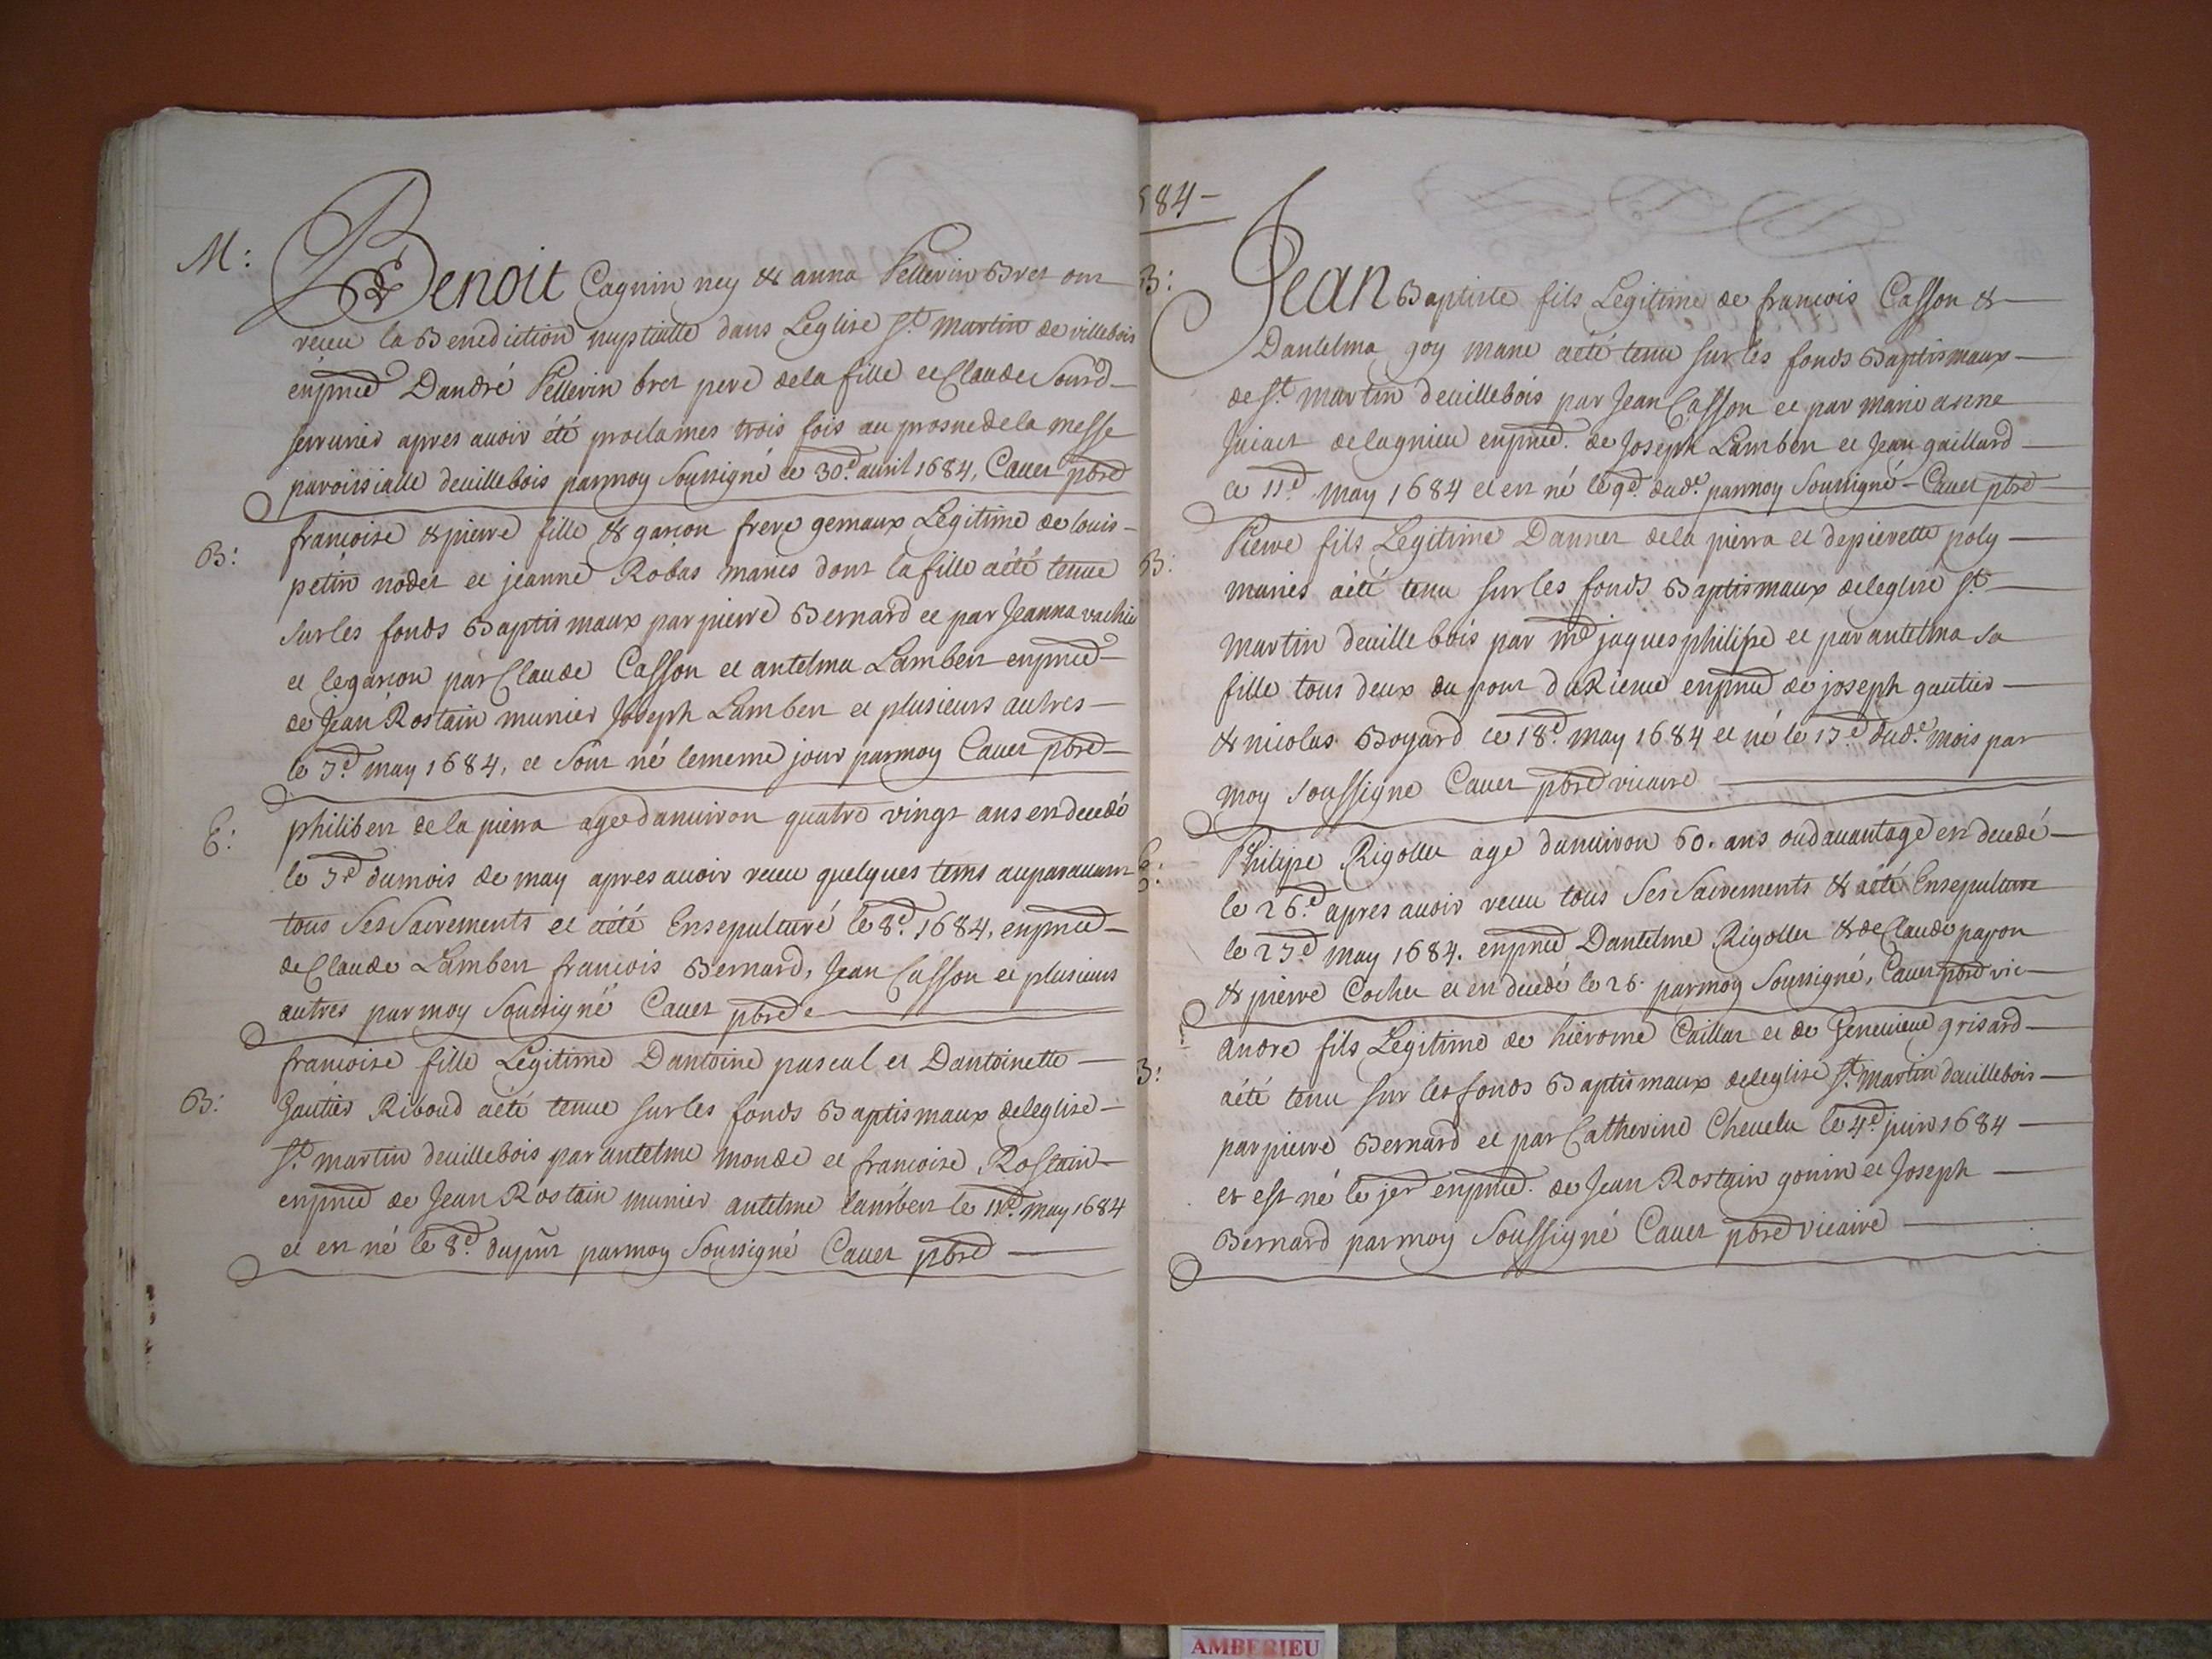 M:
Benoit Cagnin ney & anna Pellerin Bret ont
receu la Benediction nuptialle dans Leglise St. Martin de villebois
enpnce Dandré Pellerin bret pere dela fille et Claude Sourd
serrurier apres auoir été proclames trois fois au prosne dela messe
paroissialle deuillebois parmoy Soussigné ce 30e. auril 1684, Cauet pbre
B:
francoise & pierre fille & garcon frere gemaux Legitime de louis
petin nodet et jeanne Robas maries dont la fille aété tenue
sur les fonds Baptismaux par pierre Bernard et par Jeanna vachier
et legarcon par Claude Casson et antelma Lambert enpnce
de Jean Rostain munier Joseph Lambert et plusieurs autres
le 7e may 1684, et Sont né lememe jour parmoy Cauet pbre
E:
philibert de la pierra age danuiron quatre vingt ans est decedé
le 7e dumois de may apres auoir receu quelques tems auparauant
tous Ses Sacrements et aété Ensepulturé le 8e. 1684, enpnce
de Claude Lambert francois Bernard, Jean Casson et plusieurs
autres par moy Soussigné Cauet pbre
B:
francoise fille Legitime Dantoine pascal et Dantoinette
Gautier Riboud aété tenue sur les fonds Baptismaux deleglise
St. martin deuillebois par antelme monde et francoise Rostain
enpnce de Jean Rostain munier antelme lambert le 11e. may 1684
et est né le 8e. dupnt parmoy Soussigné Cauet pbre
684
B:
Jean Baptiste fils Legitime de francois Casson &
Dantelma goy marie aété tenu sur les fonds Baptismaux
de St. martin deuillebois par Jean Casson et par marie anne
delagnieu enpnce. de Joseph Lambert et Jean gaillard
ce 11e may 1684 et est né le 9e. dud. parmoy Soussigné Cauet pbre
B:
Pierre fils Legitime Dannet dela pierra et depierette poly
maries aété tenu sur les fonds Baptismaux deleglise St
martin deuillebois par me jaques philipe et par antelma sa
fille tous deux du pont enpnce de joseph gautier
& nicolas Boyard ce 18e. may 1684 et né le 17e dud. mois par
moy soussigne Cauet pbre vicaire
E:
Philipe Rigollet age danuiron 60. ans oudauantage est decedé
le 26e. apres auoir receu tous Ses Sacrements & aété Ensepulture
le 27e may 1684. enpnce Dantelme Rigollet & de Claude payon
& pierre Cochet et est decedé le 26. parmoy Soussigné, Cauet pbre vic
B:
andre fils Legitime de hierome Caillat et de Geneuieue grisard
aété tenu sur les fonds Baptismaux deleglise St. martin deuillebois
par pierre Bernard et par Catherine Cheuelu le 4e juin 1684
et est né le jer enpnce. de Jean Rostain gonin et Joseph
Bernard parmoy Soussigné Cauet pbre vicaire
AMBERIEU